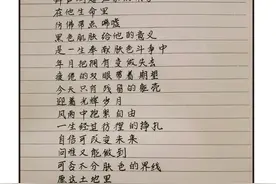 在他生命里
仿佛带点唏嘘
黑色肌肤给他的意义
是一生奉献肤色斗争中
年月把拥有变做失去
疲倦的双眼带着期望
今天只有残留的躯壳
迎着光辉岁月
风雨中抱紧自由
一生经过彷徨的挣扎
自信可改变未来
问谁又能做到
可否不分肤色的界线
愿这土地里